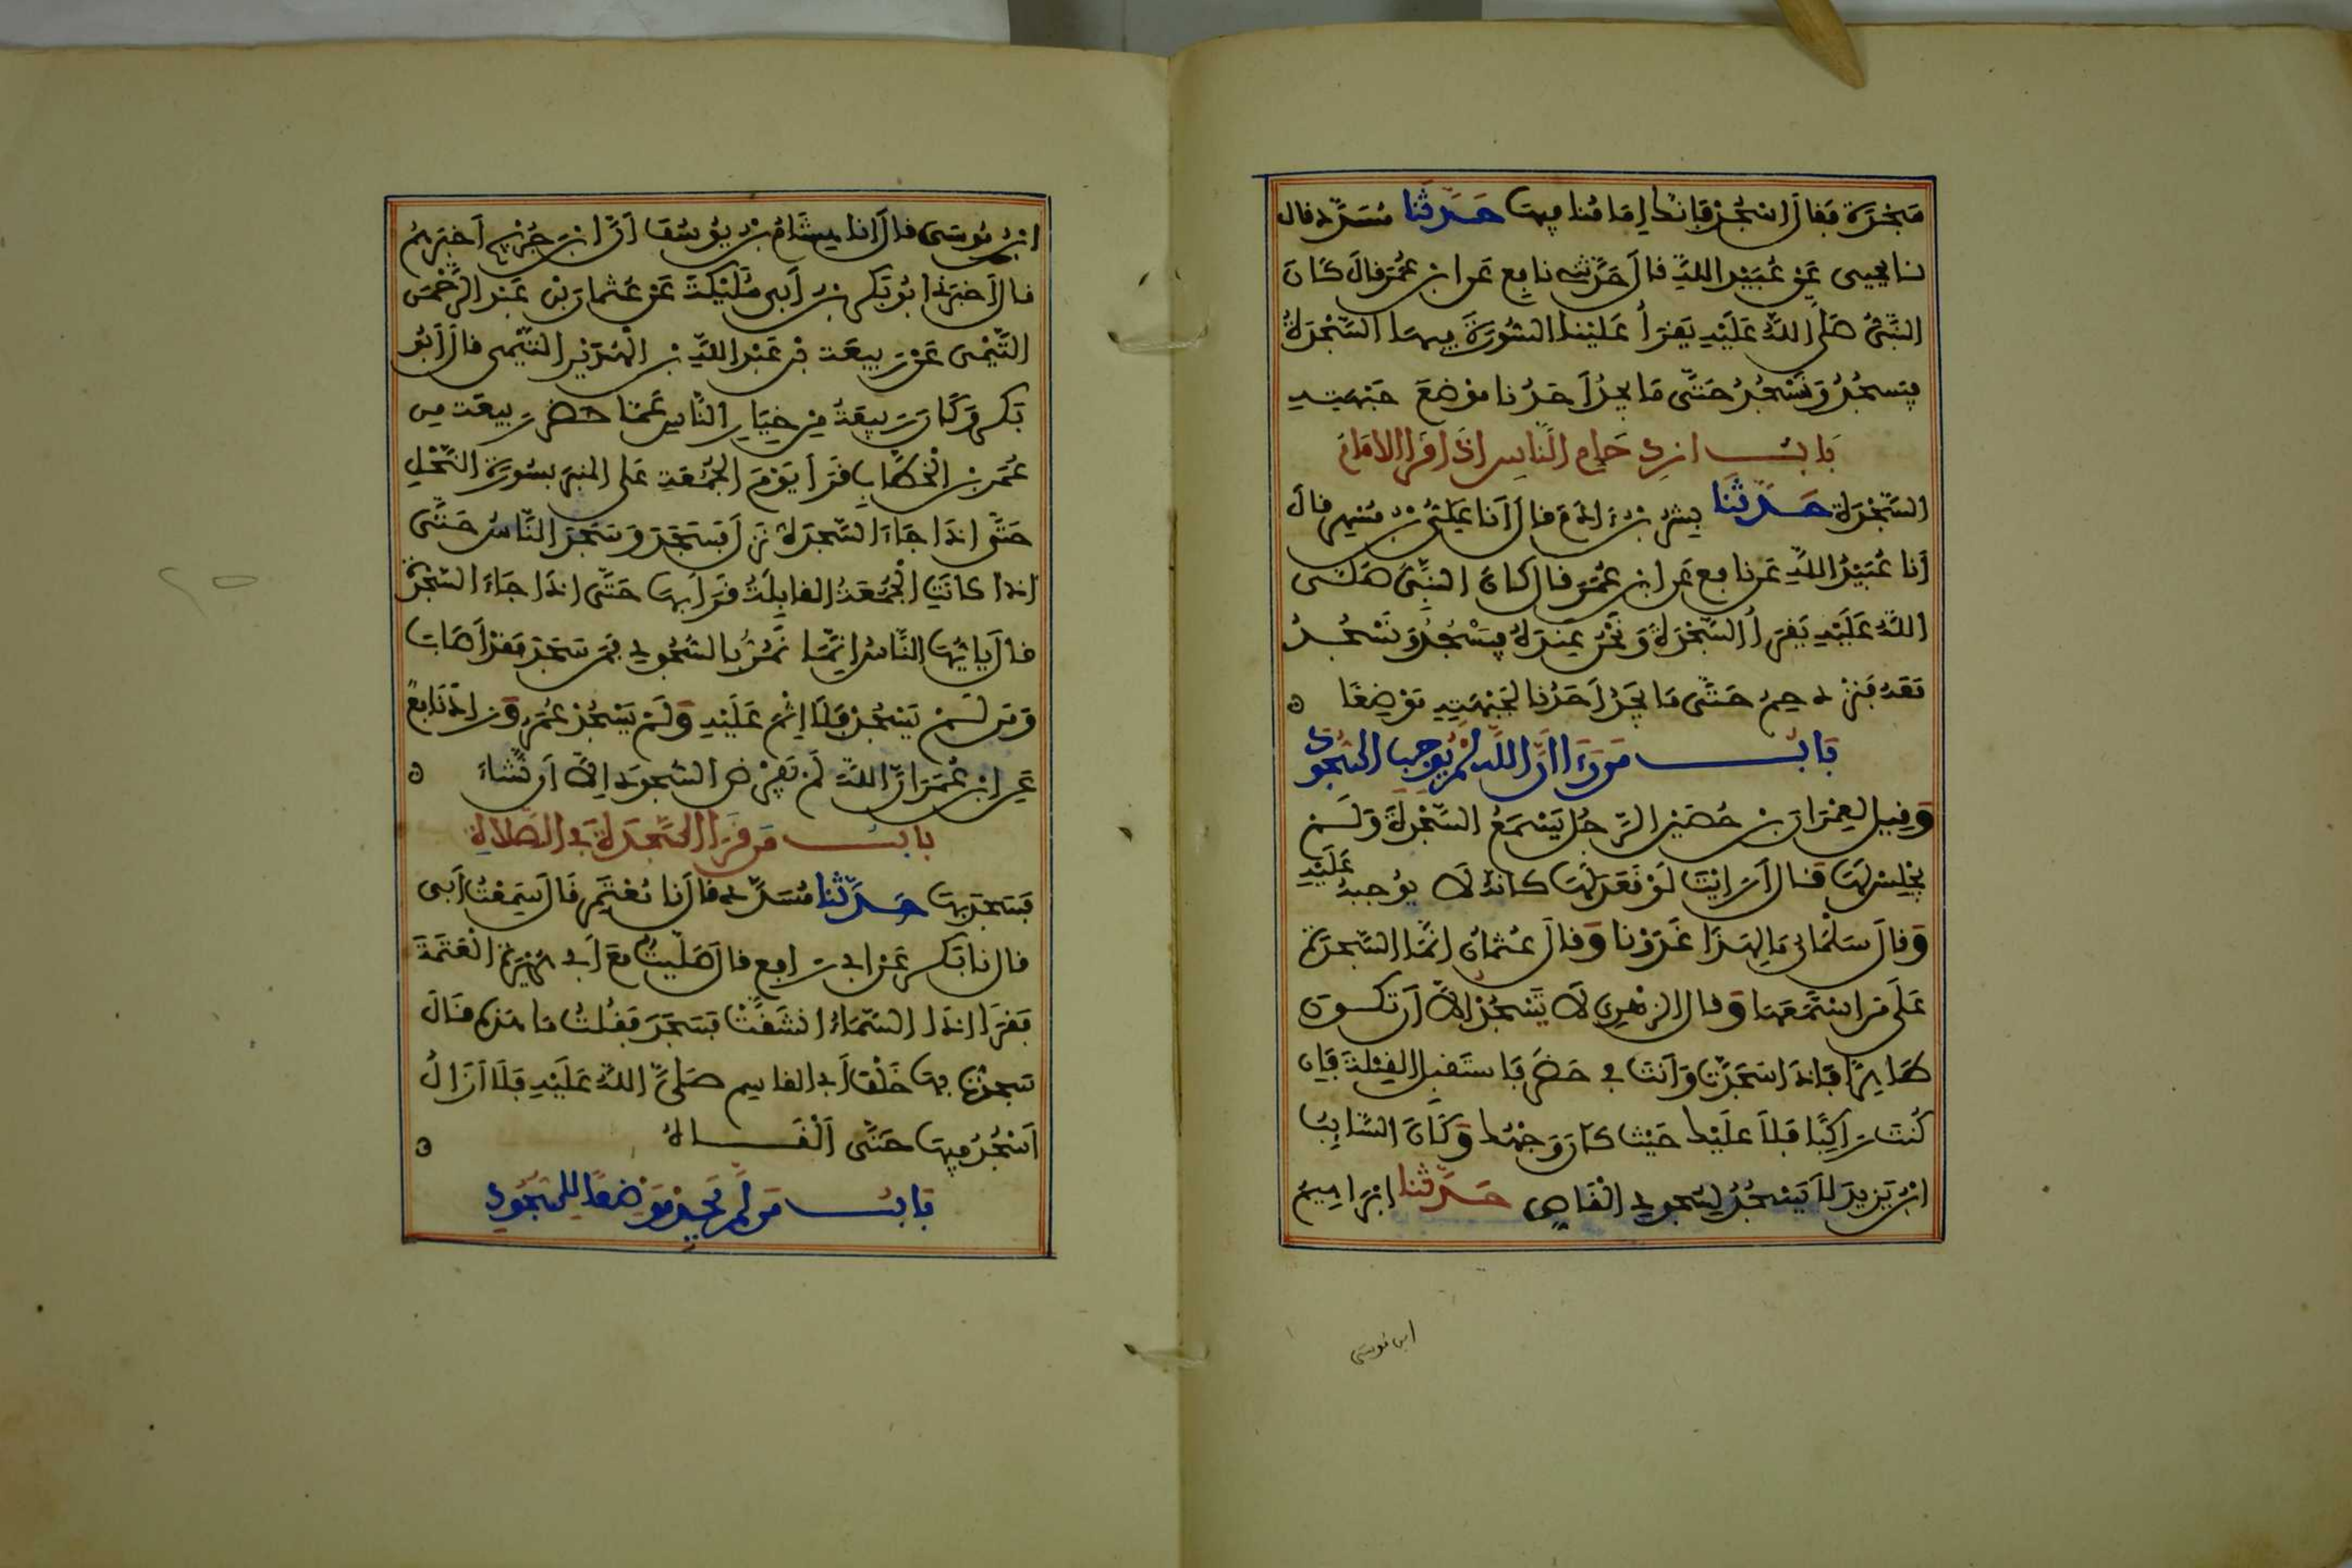 سَجْدَةً فَقَالَ اسْجُدْ فَإِنَّكَ إِمَامُنَا فِيهَا حَدَّثَنَا مُسَدَّد قال
نا يحيى عَنْ عُبَيْدِ اللَّهِ قَالَ حَدَّثَنِي نافِع عَنِ ابْنِ عُمَرَ قَالَ كَانَ
النَّبِيُّ صَلَّى اللَّهُ عَلَيْهِ يَقْرَأُ عَلَيْنَا السُّورَةَ فِيهَا السَّجْدَةُ
فَيَسْجُدُ وَنَسْجُدُ حَتَّى مَا يَجِدُ أَحَدُنَا مَوْضِعَ جَبْهَتِهِ
بَابُ ازدِحَامِ النَّاسِ إِذَا قَرَأَ الْإِمَامُ
السَّجْدَةَ حَدَّثَنَا بِشْرُ بْنُ آدَمَ قَالَ أَنَا عَلِيُّ بْنُ مُسْهِرٍ قَالَ
أَنَا عُبَيْدُ اللَّهِ عَنْ نَافِعٍ عَنِ ابْنِ عُمَرَ قَالَ كَانَ النَّبِيُّ صَلَّى
اللَّهُ عَلَيْهِ يَقْرَأُ السَّجْدَةَ وَنَحْنُ عِنْدَهُ فَيَسْجُدُ وَنَسْجُدُ
مَعَهُ فَنَزْدَحِمُ حَتَّى مَا يَجِدُ أَحَدُنَا لِجَبْهَتِهِ مَوْضِعًا
بَابُ مَنْ رَءَا أَنَّ اللَّهَ لَمْ يُوجِبِ السُّجُودَ
وَقِيلَ لِعِمْرَانَ بْنِ حُصَيْنٍ الرَّجُلُ يَسْمَعُ السَّجْدَةَ وَلَمْ
يَجْلِسْ لَهَا قَالَ أَرَأَيْتَ لَوْ قَعَدَ لَهَا كَأَنَّهُ لَا يُوجِبُهُ عَلَيْهِ
وَقَالَ سَلْمَانُ مَا لِهَذَا غَدَوْنَا وَقَالَ عُثْمَانُ إِنَّمَا السَّجْدَةُ
عَلَى مَنِ اسْتَمَعَهَا وَقَالَ الزُّهْرِي لَا تَسْجُدْ إِلَّا أَنْ تَكُونَ
طَاهِرًا فَإِذَا سَجَدْتَ وَأَنْتَ فِي حَضَرٍ فَاسْتَقْبِلِ الْقِبْلَةَ فَإِن
كُنْتَ رَاكِبًا فَلَا عَلَيْكَ حَيْثُ كَانَ وَجْهُكَ وَكَانَ السَّائِبُ
ابْنُ يَزِيدَ لَا يَسْجُدُ لِسُجُودِ الْقَاصِّ حَدَّثَنَا إِبْرَاهِيمُ
ابن موسى
ابْنُ مُوسَى قَالَ أَنَا هِشَامُ بْنُ يُوسُفَ أَنَّ ابْنَ جُرَيْجٍ أَخْبَرَهُمْ
قَالَ أَخْبَرَنِي أَبُو بَكْرِ بْنُ أَبِي مُلَيْكَةَ عَنْ عُثْمَانَ بْنِ عَبْدِ الرَّحْمَنِ
التَّيْمِي عَنْ رَبِيعَةَ بْنِ عَبْدِ اللَّهِ بْنِ الْهُدَيْرِ التَّيْمِي قَالَ أَبُو
بَكْرٍ وَكَانَ رَبِيعَةُ مِنْ خِيَارِ النَّاسِ عَمَّا حَضَرَ رَبِيعَةُ مِن
عُمَرَ بْنِ الْخَطَّابِ قَرَأَ يَوْمَ الْجُمُعَةِ عَلَى الْمِنْبَرِ بِسُورَةِ النَّحْلِ
حَتَّى إِذَا جَاءَ السَّجْدَةَ نَزَلَ فَسَجَدَ وَسَجَدَ النَّاسُ حَتَّى
إِذَا كَانَتِ الْجُمُعَةُ الْقَابِلَةُ قَرَأَ بِهَا حَتَّى إِذَا جَاءَ السَّجْدَةَ
قَالَ يَا أَيُّهَا النَّاسُ إِنَّمَا نَمُرُّ بِالسُّجُودِ فَمَنْ سَجَدَ فَقَدْ أَصَابَ
وَمَنْ لَمْ يَسْجُدْ فَلَا إِثْمَ عَلَيْهِ وَلَمْ يَسْجُدْ عُمَرُ وَزَادَ نَافِعٌ
عَنِ ابْنِ عُمَرَ أَنَّ اللَّهَ لَمْ يَفْرِضِ السُّجُودَ إِلَّا أَنْ نَشَاءَ
بابُ مَنْ قَرَأَ السَّجْدَةَ فِي الصَّلَاةِ
فَسَجَدَ بِهَا حَدَّثَنَا مُسَدَّدٌ قَالَ نَا مُعْتَمِر قَالَ سَمِعْتُ أَبِي
قَالَ نَا بَكْر عَنْ أَبِي رَافِع قَالَ صَلَّيْتُ مَعَ أَبِي هُرَيْرَةَ الْعَتَمَةَ
فَقَرَأَ إِذَا السَّمَاءُ انْشَقَّتْ فَسَجَدَ فَقُلْتُ مَا هَذِهِ قَالَ
سَجَدْتُ بِهَا خَلْفَ أَبِي الْقَاسِمِ صَلَّى اللَّهُ عَلَيْهِ فَلَا أَزَالُ
أَسْجُدُ فِيهَا حَتَّى أَلْقَاهُ
بَابُ مَنْ لَمْ يَجِدْ مَوْضِعًا لِلسُّجُودِ